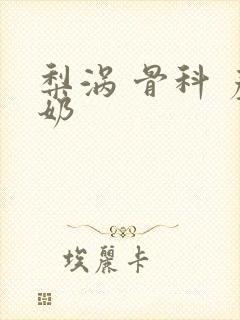 梨涡 骨科
奶
埃麗卡